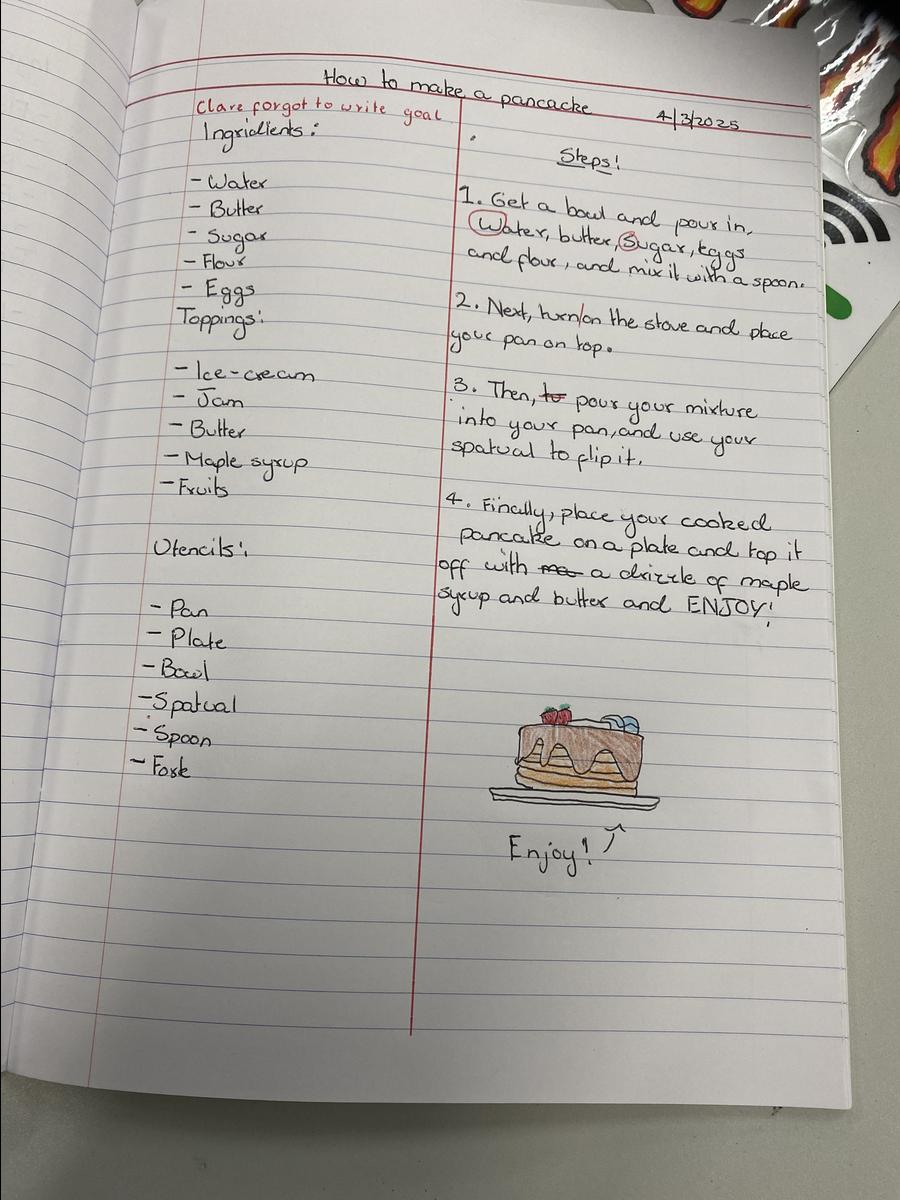 How to make a pancacke
4/3/2025
Clare forgot to write goal
Ingridients:
- Water
- Butter
- Sugar
- Flour
- Eggs
Toppings:
- Ice-cream
- Jam
- Butter
- Maple syrup
- Fruits
Utencils:
- Pan
- Plate
- Bowl
- Spatual
- Spoon
- Fork
Steps!
1. Get a bowl and pour in,
Water, butter, Sugar, eggs
and flour, and mix it with a spoon.
2. Next, turn/on the stove and place
your pan on top.
3. Then, to pour your mixture
into your pan, and use your
spatual to flip it.
4. Finally, place your cooked
pancake on a plate and top it
off with a drizzle of maple
syrup and butter and ENJOY!
Enjoy!